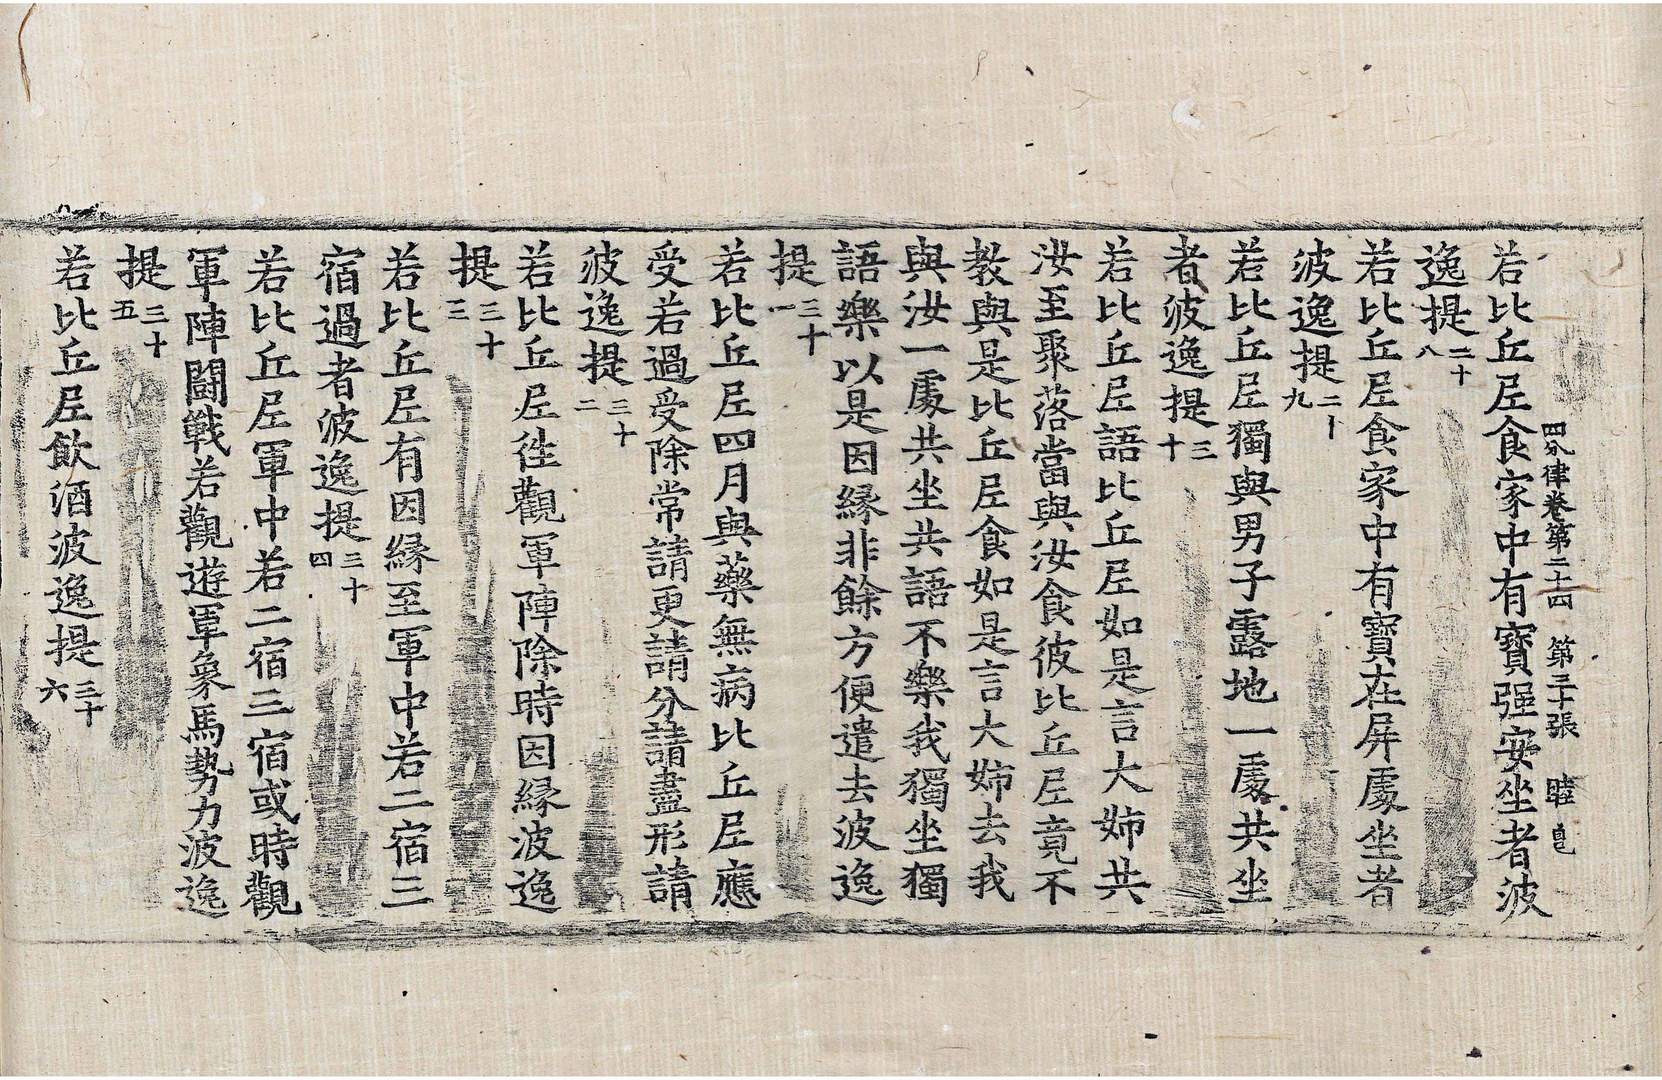 四分律卷第二十四 第三十張 睦
若比丘尼食家中有寶强安坐者波
逸提二十八
若比丘尼食家中有寶在屏處坐者
波逸提二十九
若比丘尼獨與男子露地一處共坐
者波逸提三十
若比丘尼語比丘尼如是言大姉共
汝至聚落當與汝食彼比丘尼竟不
教與是比丘尼食如是言大姉去我
與汝一處共坐共語不樂我獨坐獨
語樂以是因緣非餘方便遣去波逸
提三十一
若比丘尼四月與藥無病比丘尼應
受若過受除常請更請分請盡形請
波逸提三十二
若比丘尼徃觀軍陣除時因緣波逸
提三十三
若比丘尼有因緣至軍中若二宿三
宿過者波逸提三十四
若比丘尼軍中若二宿三宿或時觀
軍陣鬪戰若觀遊軍象馬勢力波逸
提三十五
若比丘尼飲酒波逸提三十六